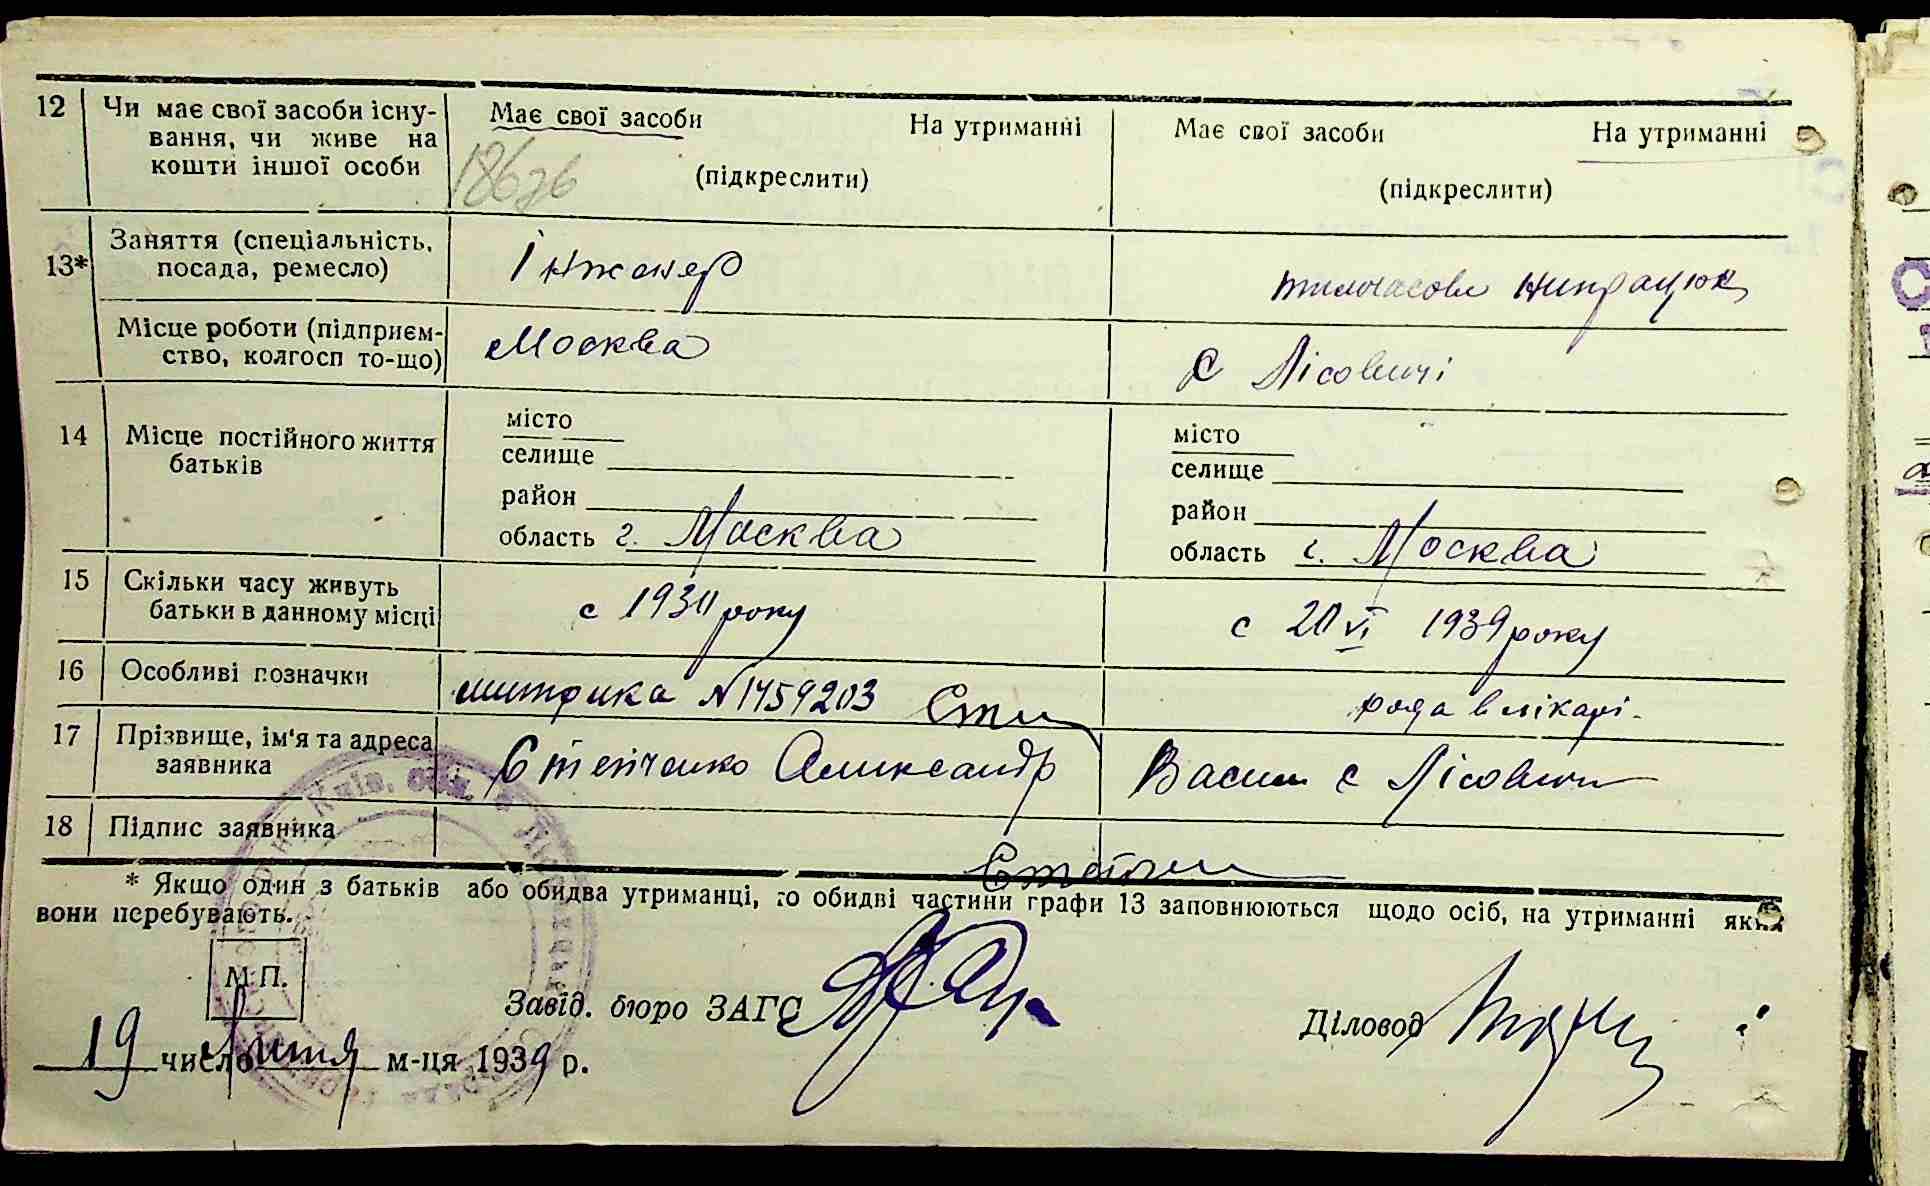 12 Чи має свої засоби існу- Має свої засоби На утриманні Має свої засоби На утриманні
вання, чи живе на
кошти іншої особи (підкреслити) (підкреслити)
13* Заняття (спеціальність, Інженер тимчасово
посада, ремесло)
Місце роботи (підприєм- Москва с Лісовичі
ство, колгосп то-що)
14 Місце постійного життя місто місто
батьків селище селище
район район
область г. Москва область г. Москва
15 Скільки часу живуть с року с 20 VI 1939 року
батьки в данному місці
16 Особливі позначки митрика N 1459203 рода в лікарі.
17 Прізвище, ім'я та адреса Александр с Лісовичі
заявника
18 Підпис заявника
* Якщо один з батьків або обидва утриманці, то обидві частини графи 13 заповнюються щодо осіб, на утриманні яких
вони перебувають.
М.П.
Завід. бюро ЗАГС Діловод
19 число Липня м-ця 1939 р.